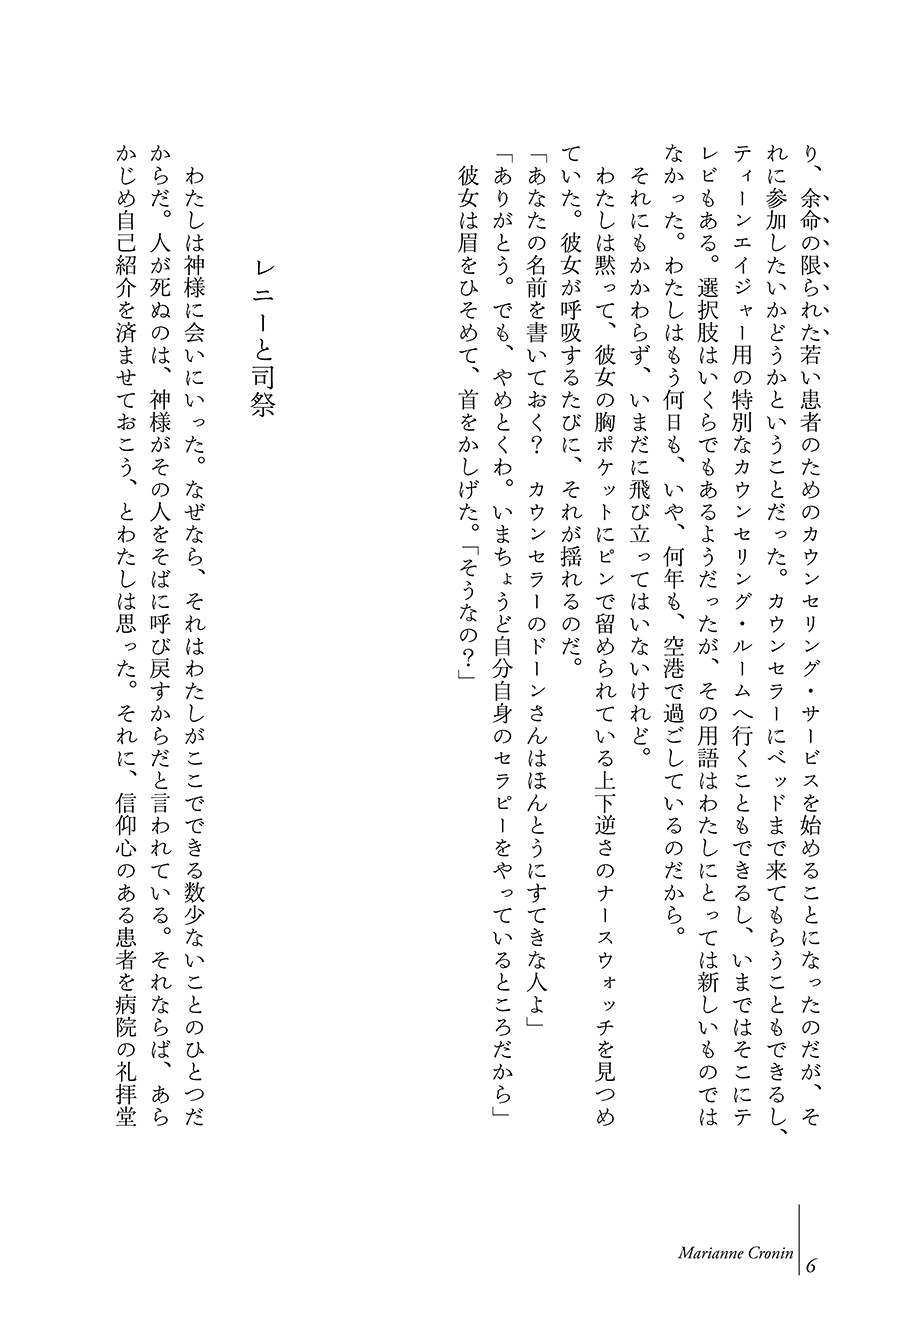 り、余命の限られた若い患者のためのカウンセリング・サービスを始めることになったのだが、そ
れに参加したいかどうかということだった。カウンセラーにベッドまで来てもらうこともできるし、
ティーンエイジャー用の特別なカウンセリング・ルームへ行くこともできるし、いまではそこにテ
レビもある。選択肢はいくらでもあるようだったが、その用語はわたしにとっては新しいものでは
なかった。わたしはもう何日も、いや、何年も、空港で過ごしているのだから。
それにもかかわらず、いまだに飛び立ってはいないけれど。
わたしは黙って、彼女の胸ポケットにピンで留められている上下逆さのナースウォッチを見つめ
ていた。彼女が呼吸するたびに、それが揺れるのだ。
「あなたの名前を書いておく？　カウンセラーのドーンさんはほんとうにすてきな人よ」
「ありがとう。でも、やめとくわ。いまちょうど自分自身のセラピーをやっているところだから」
彼女は眉をひそめて、首をかしげた。「そうなの？」
レニーと司祭
わたしは神様に会いにいった。なぜなら、それはわたしがここでできる数少ないことのひとつだ
からだ。人が死ぬのは、神様がその人をそばに呼び戻すからだと言われている。それならば、あら
かじめ自己紹介を済ませておこう、とわたしは思った。それに、信仰心のある患者を病院の礼拝堂
Marianne Cronin
6